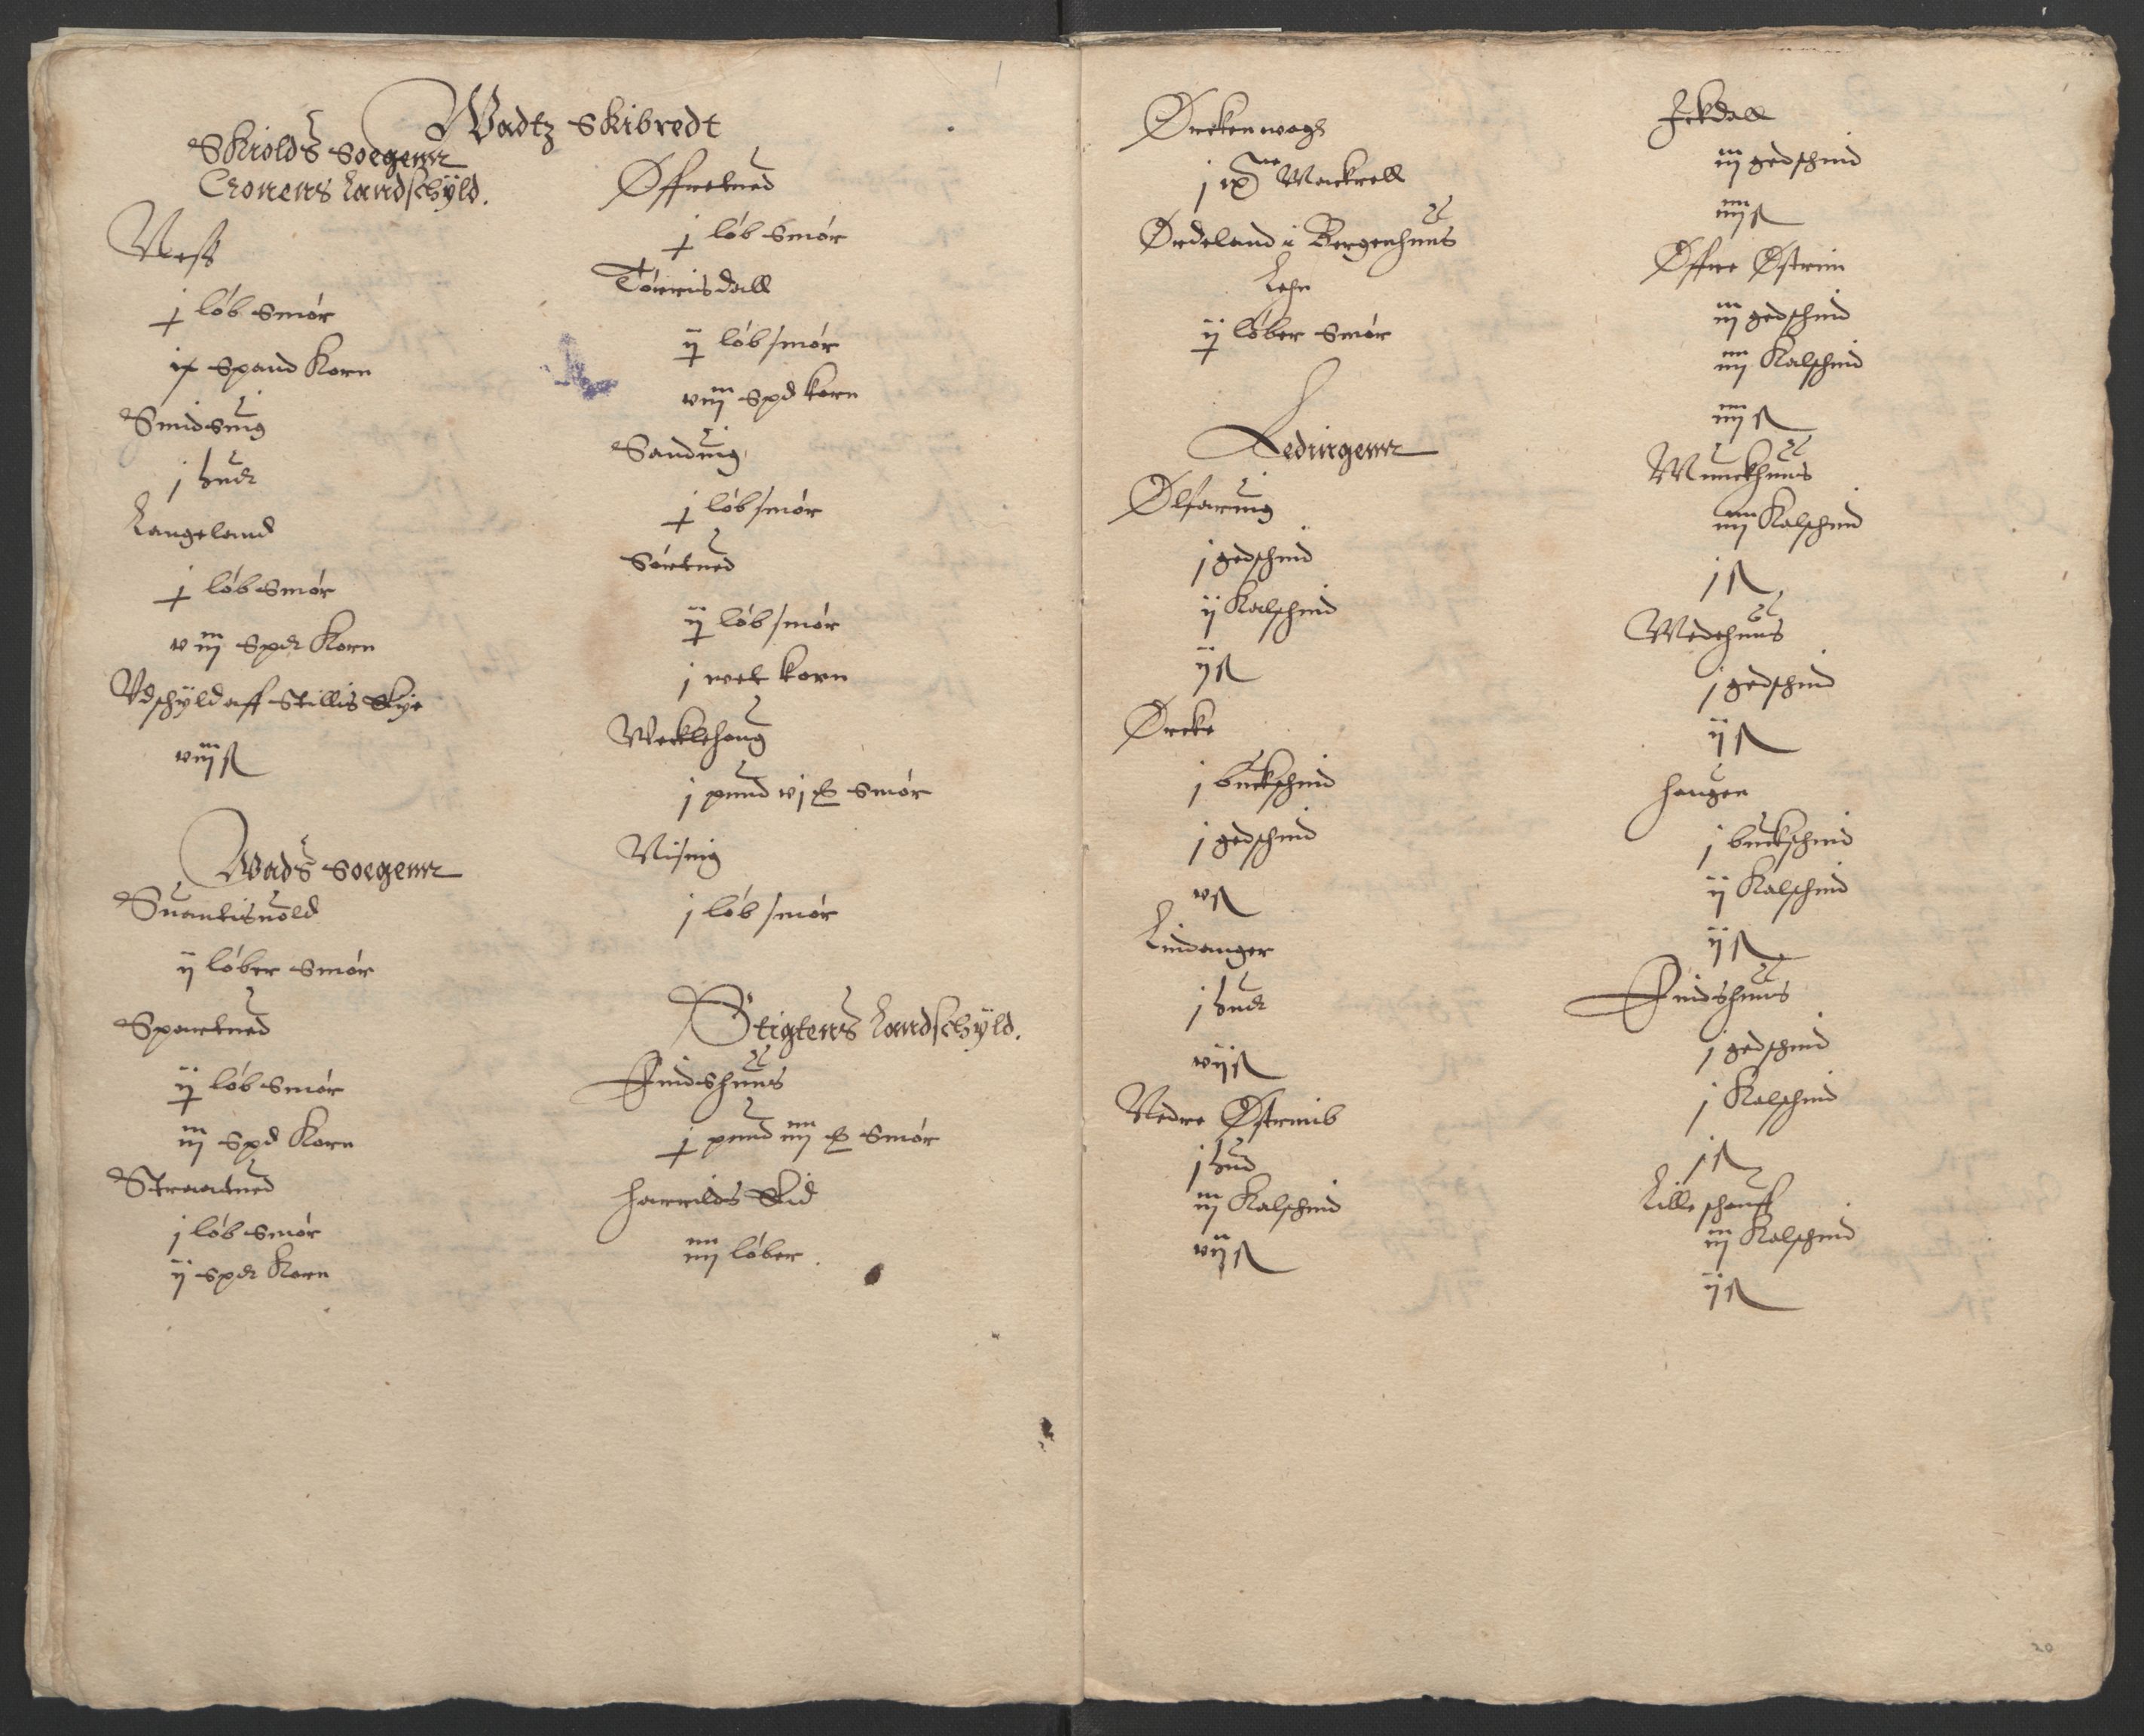 Wadtz Skibredt
Skiolds Soegenn
Cronens Landschÿld.
Ness
j løb Smør
ix Spand Korn
Smidsuig
j hudt
Langeland
j løb Smør
viij Spd Korn
Vdschÿld aff Stillis Skije
viij ß
Wads Soegenn
Suantisuold
ij løber Smør
Sponetued
ij løb Smør
iij Spd Korn
Straatued
j løb Smør
ij Spd Korn
Øffretued
j løb Smør
Tørrisdall
ij løb smør
viij Spd korn
Sanduig
j løb smør
Sørtued
ij løb smør
j wet korn
Wecklehoug
j pund vj ℔ Smør
Nisuig
j løb smør
Stigtens Landschÿld.
Findshuus
j pund iiij ℔ Smør
Harrilds Skid
iiij løber
Ørckenwogh
j Mackrell
Ørdeland i Bergenhuus
Lehn
ij løber Smør
Ledingenn
Ølfaruig
j gedschind
ij Kalschind
ij ß
Ørcke
j buckschind
j gedschind
v ß
Lindanger
j hudt
vij ß
Nedre Østrinib
j hud
iij Kalschind
vij ß
Jekdall
iij gedschind
iiij ß
Øffre Østrim
iij gedschind
iiij Kalschind
iiij ß
Munckhuus
iiij Kalschind
j ß
Medehuus
j gedschind
ij ß
Hougen
j buckschind
ij Kalschind
ij ß
Findshuus
j gedschind
j Kalschind
j ß
Lille schouff
iij Kalschind
ij ß
20